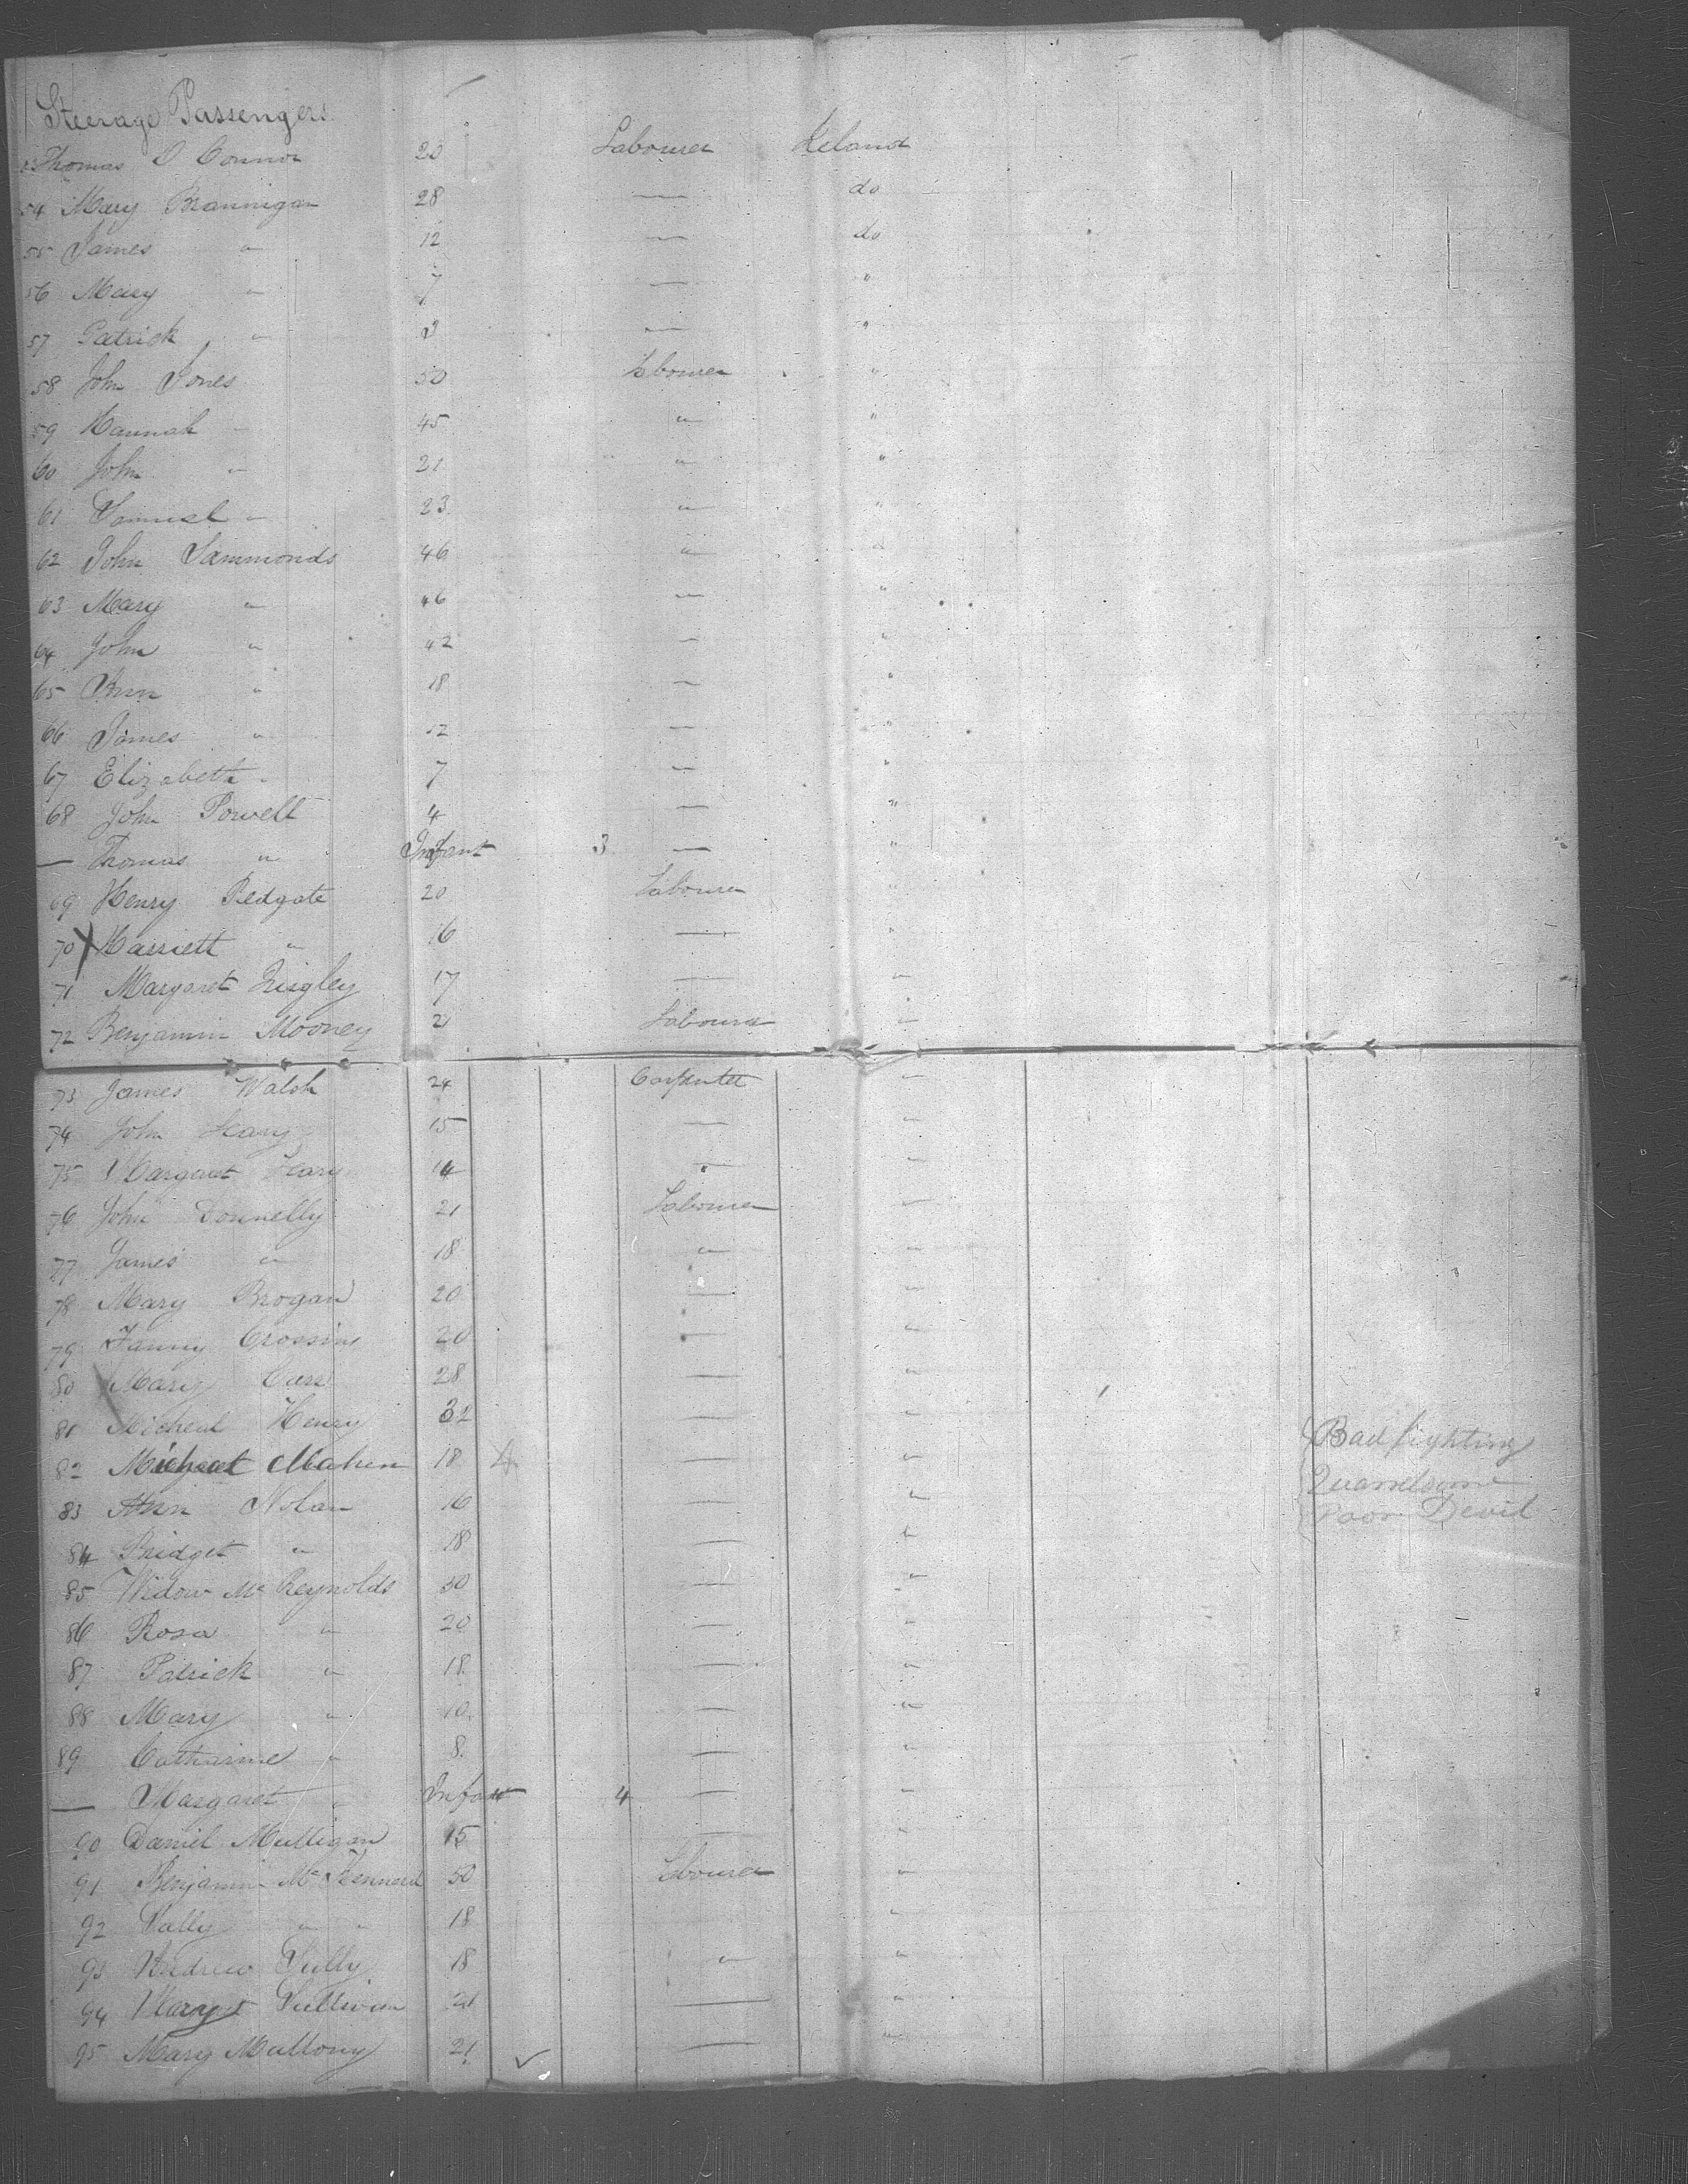 Steerage Passengers
Thomas O Connor 20 Labourer Ireland
54 Mary Brannigan 28 — do
55 James " 12 — do
56 Mary " 7 — "
57 Patrick " 3 — "
58 John Jones 50 Labourer "
59 Hannah " 45 " "
60 John " 21 " "
61 Samuel " 23 " "
62 John Sammonds 46 " "
63 Mary " 46 — "
64 John " 42 — "
65 Ann " 18 — "
66 James " 12 — "
67 Elizabeth " 7 — "
68 John Powell 4 — "
— Thomas " Infant 3 — "
69 Henry Redgate 20 Labourer "
70 X Harriett " 16 — "
71 Margaret 17 — "
72 Benjamin Mooney 21 Labourer "
73 James Walsh 24 Carpenter "
74 John 15 — "
75 Margaret 14 — "
76 John Donnelly 21 Labourer "
77 James " 18 " "
78 Mary Brogan 20 — "
79 Fanny Crossing 20 — "
80 Mary Carr 28 — "
81 Micheal Henry 32 — "
82 Mahen 18 — " Bad fighting
83 Ann Nolan 16 — " Quarrelsome
84 Bridget " 18 — " Poor Devil
85 Widow Mc Reynolds 50 — "
86 Rosa " 20 — "
87 Patrick " 18 — "
88 Mary " 10 — "
89 Catharine " 8 — "
— Margaret " Infant 4 — "
90 Daniel Mulligan 15 — "
91 Benjamin Mc 50 Labourer "
92 Sally " " 18 "
93 Andrew Tully 18 " "
94 Margt Sullivan 21 — "
95 Mary Mallony 21 ✓ — "